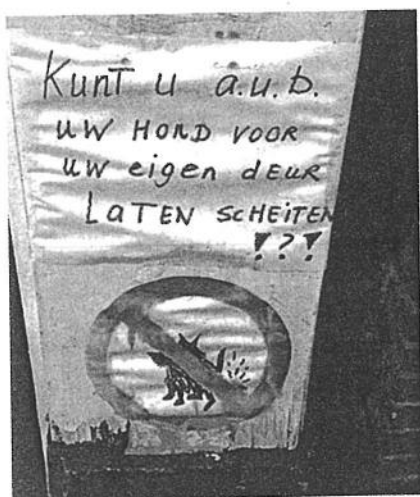 Kunt u a.u.b.
uw HOND VOOR
uw eigen dEUR
LaTEN scHEiTEN
!?!